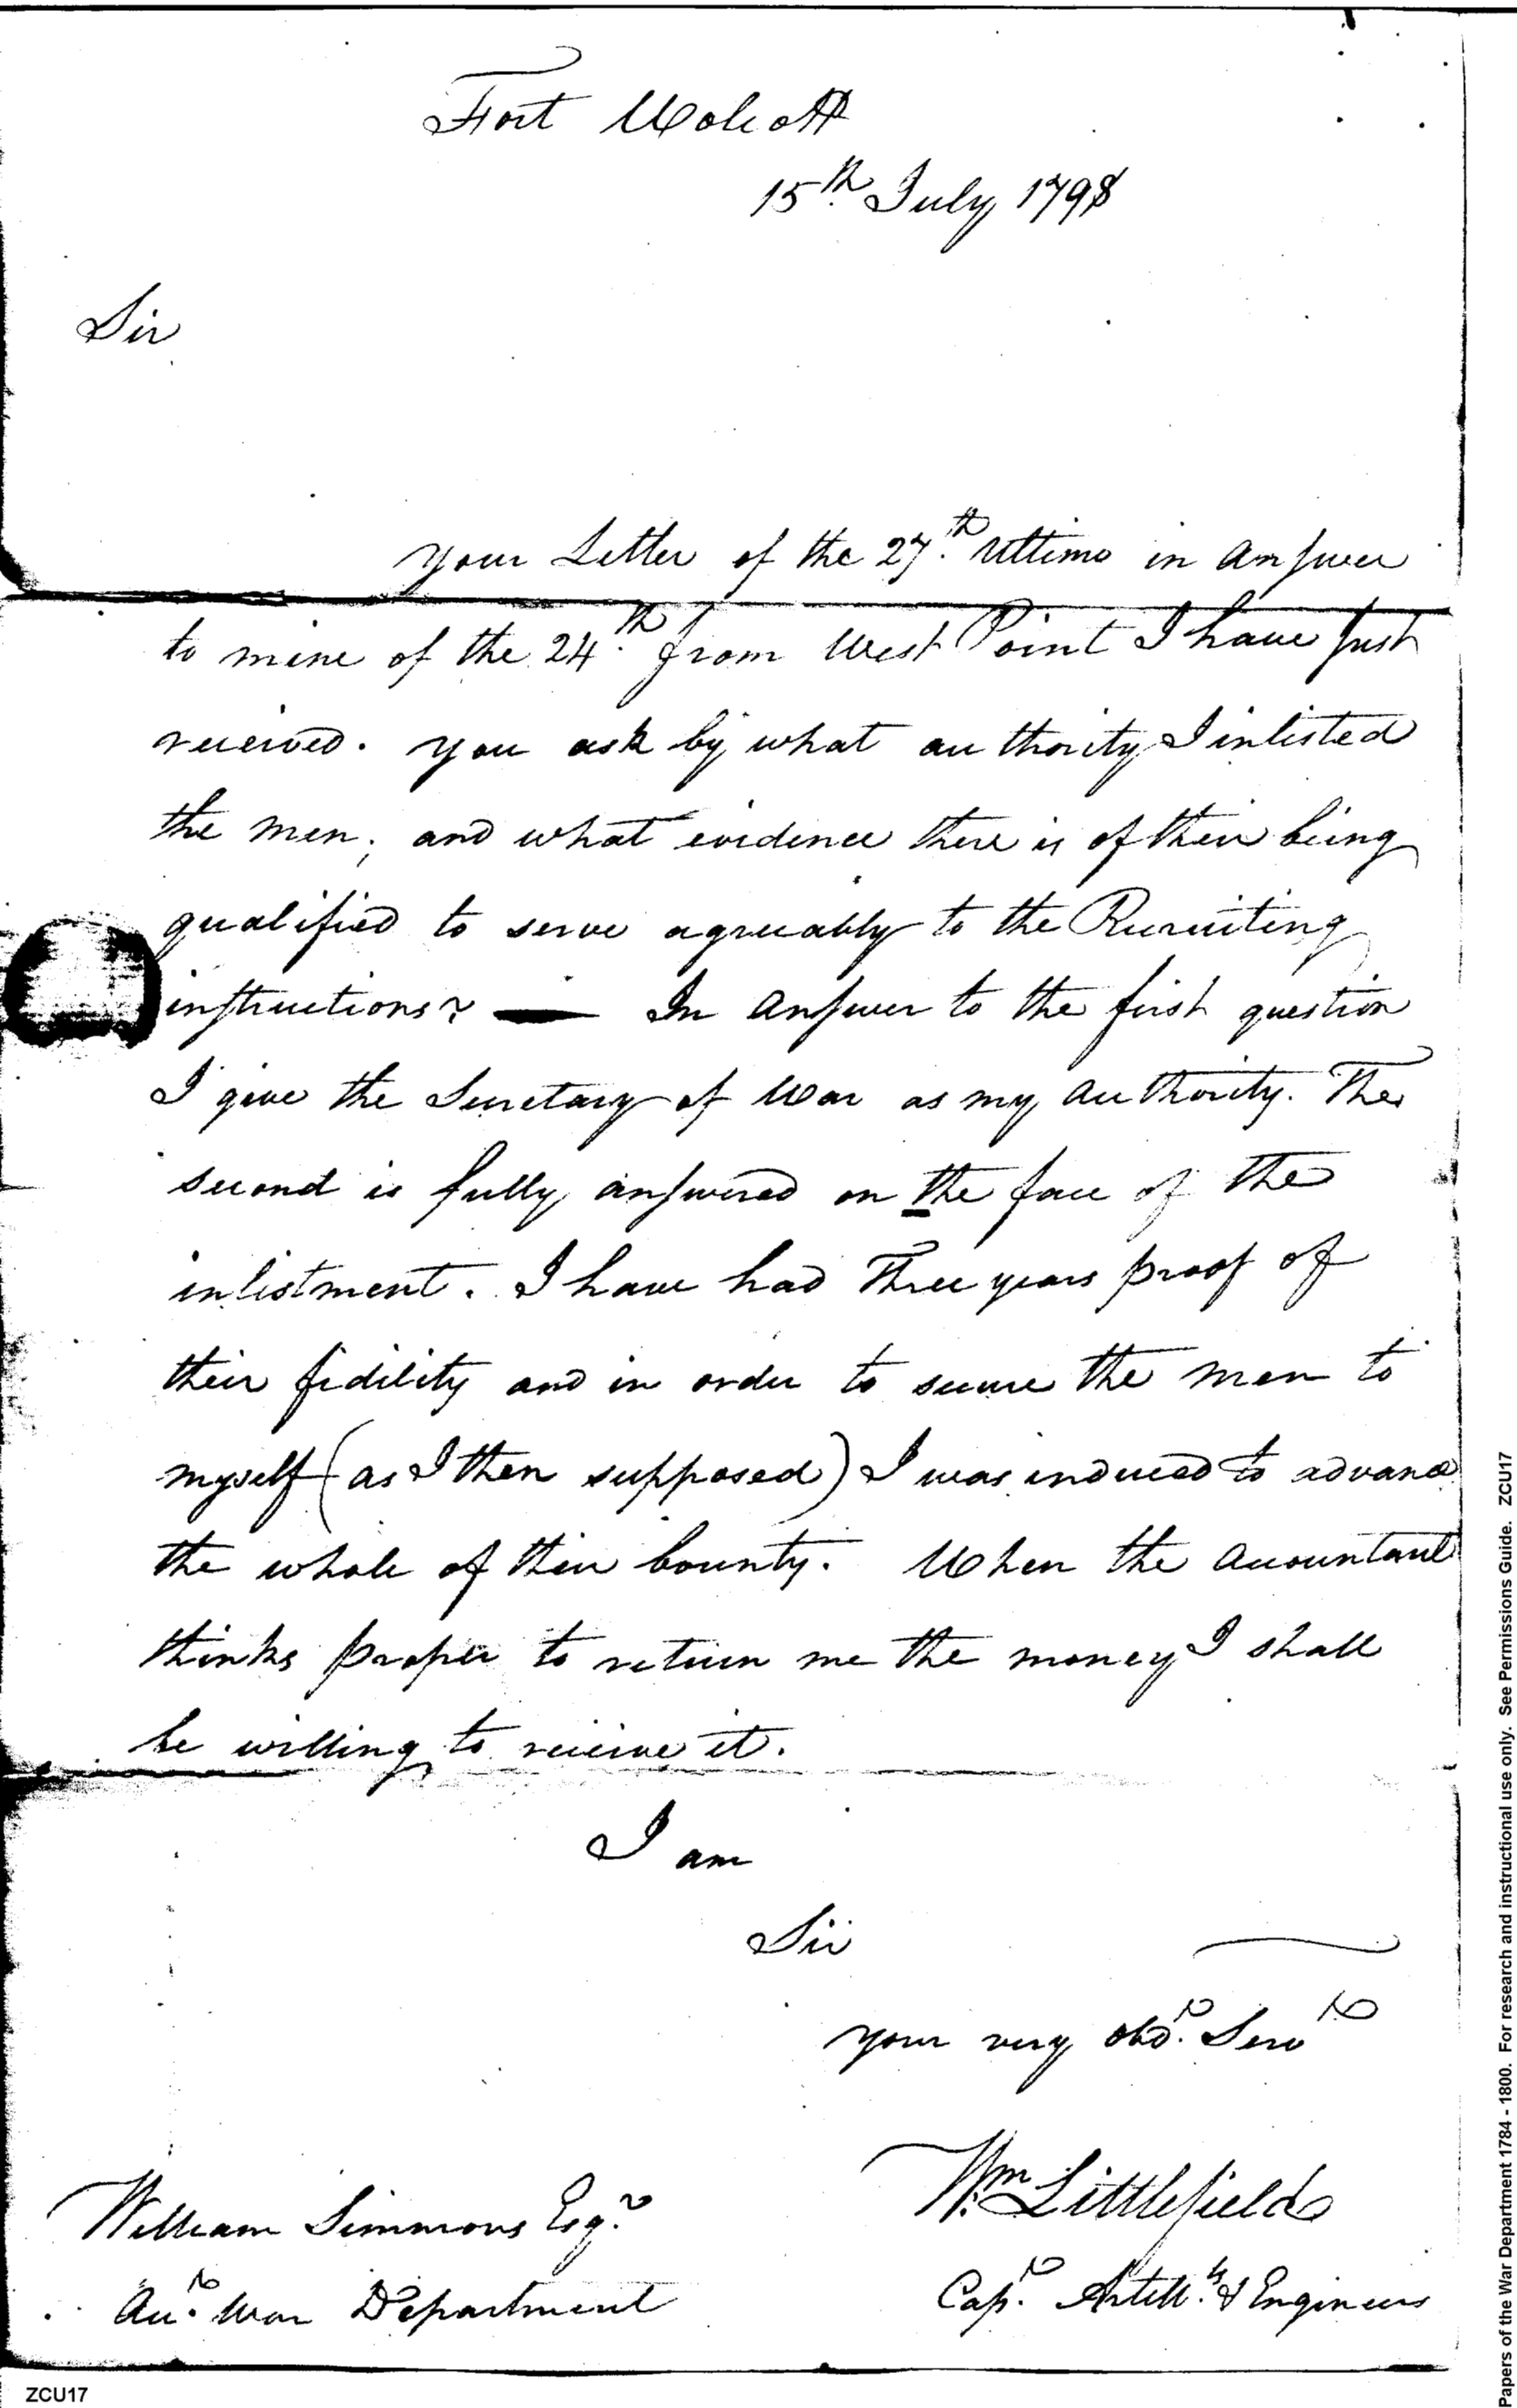 Fort Wolcott
15th July 1798
Sir
your Letter of the 27th Ultimo in answer
to mine of the 24th from West Point I have Just
received. you ask by what authority I inlisted
the men; and what evidence there is of their being
qualified to serve agreeably to the Recruiting
instructions? — In answer to the first question
I give the Secretary of War as my authority. The
second is fully answered on the face of the
inlistment. I have had Three years proof of
their fidility and in order to secure the men to
myself (as I then supposed) I was induced to advance
the whole of their bounty. When the accountant
thinks proper to return me the money I shall
be willing to receive it.
I am
Sir
your very obdt. Servt
Wm. Littlefield
Capt. Artills. & Engineers
William Simmons Esqr.
Acct. War Department
ZCU17
Papers of the War Department 1784 - 1800. For research and instructional use only. See Permissions Guide. ZCU17